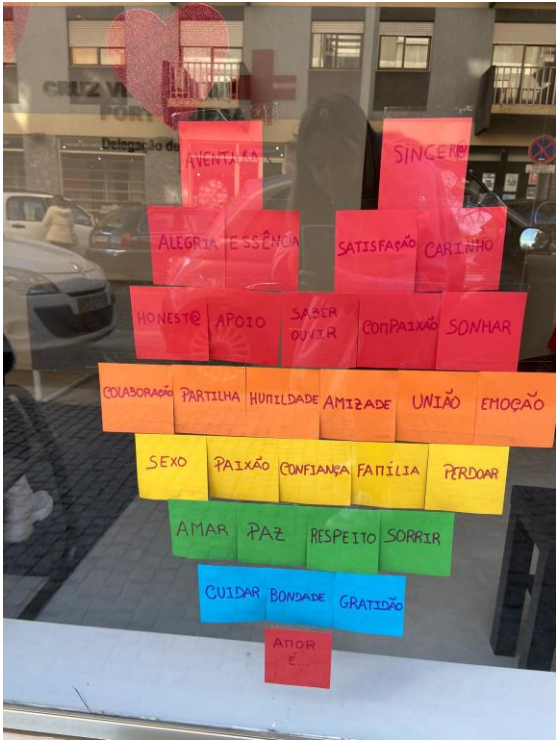 CRUZ VERMELHA
PORTUGUESA
Delegação de
AVENTURA
SINCER@
ALEGRIA ESSÊNCIA SATISFAÇÃO CARINHO
HONEST@ APOIO SABER OUVIR COMPAIXÃO SONHAR
COLABORAÇÃO PARTILHA HUMILDADE AMIZADE UNIÃO EMOÇÃO
SEXO PAIXÃO CONFIANÇA FAMÍLIA PERDOAR
AMAR PAZ RESPEITO SORRIR
CUIDAR BONDADE GRATIDÃO
AMOR
É...